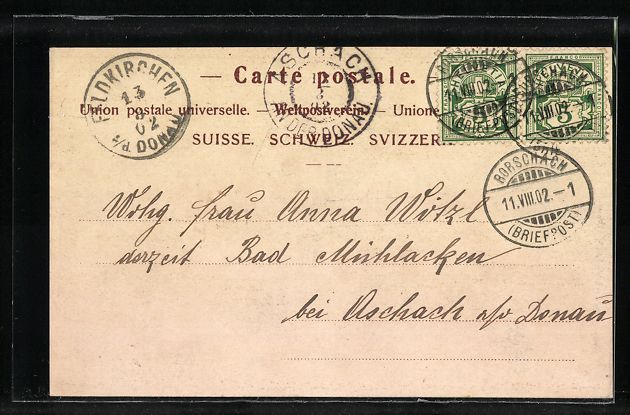 FELDKIRCHEN
13
02
P/A DONAU
ASCHACH
AN DER DONAU
— Carte postale. —
Union postale universelle. — Weltpostverein. — Unione
SUISSE. SCHWEIZ. SVIZZERA.
RORSCHACH
11.VIII.02.–1
(BRIEFPOST)
FRANCO
5
RORSCHACH
11.VIII.02.–1
(BRIEFPOST)
Wohg. Frau Anna Wötzl
derzeit Bad Mühlacken
bei Aschach a/o Donau